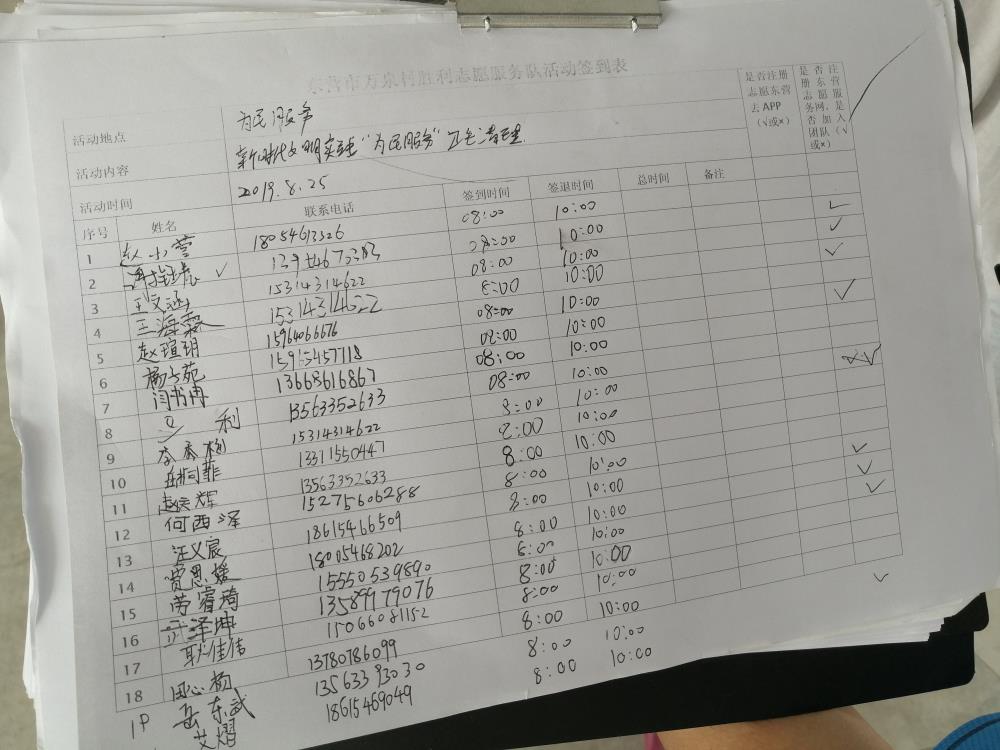 东营市万泉村胜利志愿服务队活动签到表
活动地点 为民服务 是否注册志愿东营去APP（√或×） 是否注册东营志愿服务网，是否加入团队（√或×）
活动内容 新时代文明实践“为民服务”卫生清理
活动时间 2019.8.25
序号 姓名 联系电话 签到时间 签退时间 总时间 备注
1 赵小萱 18054613326 08:00 10:00 √
2 √ 08:00 10:00 √
3 王文涵 15314314622 08:00 10:00 √
4 王海霖 15314314622 8:00 10:00
5 赵瑄玥 15964066676 08:00 10:00 √
6 08:00 10:00
7 闫书冉 13668616867 08:00 10:00
8 利 13563352633 08:00 10:00
9 李秀梅 15314314622 8:00 10:00
10 菲 13311550447 8:00 10:00
11 辉 13563352633 8:00 10:00 √
12 何西泽 15275606288 8:00 10:00 √
13 汪义宸 18615466509 8:00 10:00 √
14 贾思媛 18005468202 8:00 10:00
15 睿琦 15550539890 8:00 10:00
16 武泽坤 13589979076 8:00 10:00
17 耿佳伟 15066081152 8:00 10:00 √
18 田心 13780786099 8:00 10:00
19 岳东武 13563393030 8:00 10:00
艾熠 18615469049 8:00 10:00